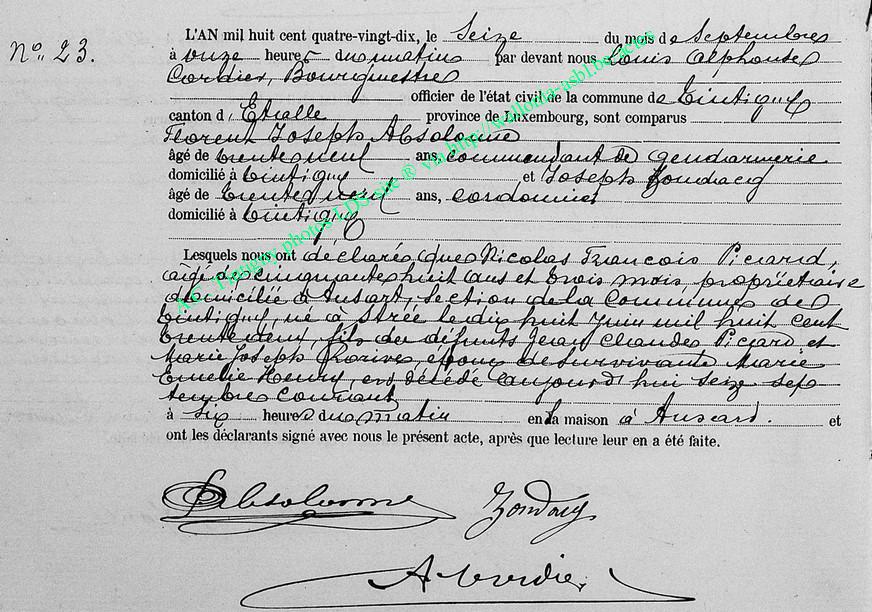 N° 23.
L'AN mil huit cent quatre-vingt-dix, le Seize du mois de Septembre
à onze heures du matin par devant nous Louis Alphonse
Cordier, Bourgmestre
officier de l'état civil de la commune de Tintigny
canton d'Etalle province de Luxembourg, sont comparus
Florent Joseph Absolonne
âgé de trente neuf ans, commandant de gendarmerie
domicilié à Tintigny et Joseph Zondacq
âgé de trente neuf ans, cordonnier
domicilié à Tintigny
Lesquels nous ont déclaré que Nicolas François Picard,
âgé de cinquante huit ans et trois mois, propriétaire
domicilié à Ansart, section de la commune de
Tintigny, né à Strée le dix huit Juin mil huit cent
trente deux, fils de défunts Jean Claude Picard et
Marie Joseph époux de survivante Marie
Emelie Henry, est décédé aujourd'hui seize sep
tembre courant
à six heures du matin en la maison à Ansard. et
ont les déclarants signé avec nous le présent acte, après que lecture leur en a été faite.
Absolonne Zondacq
A Cordier